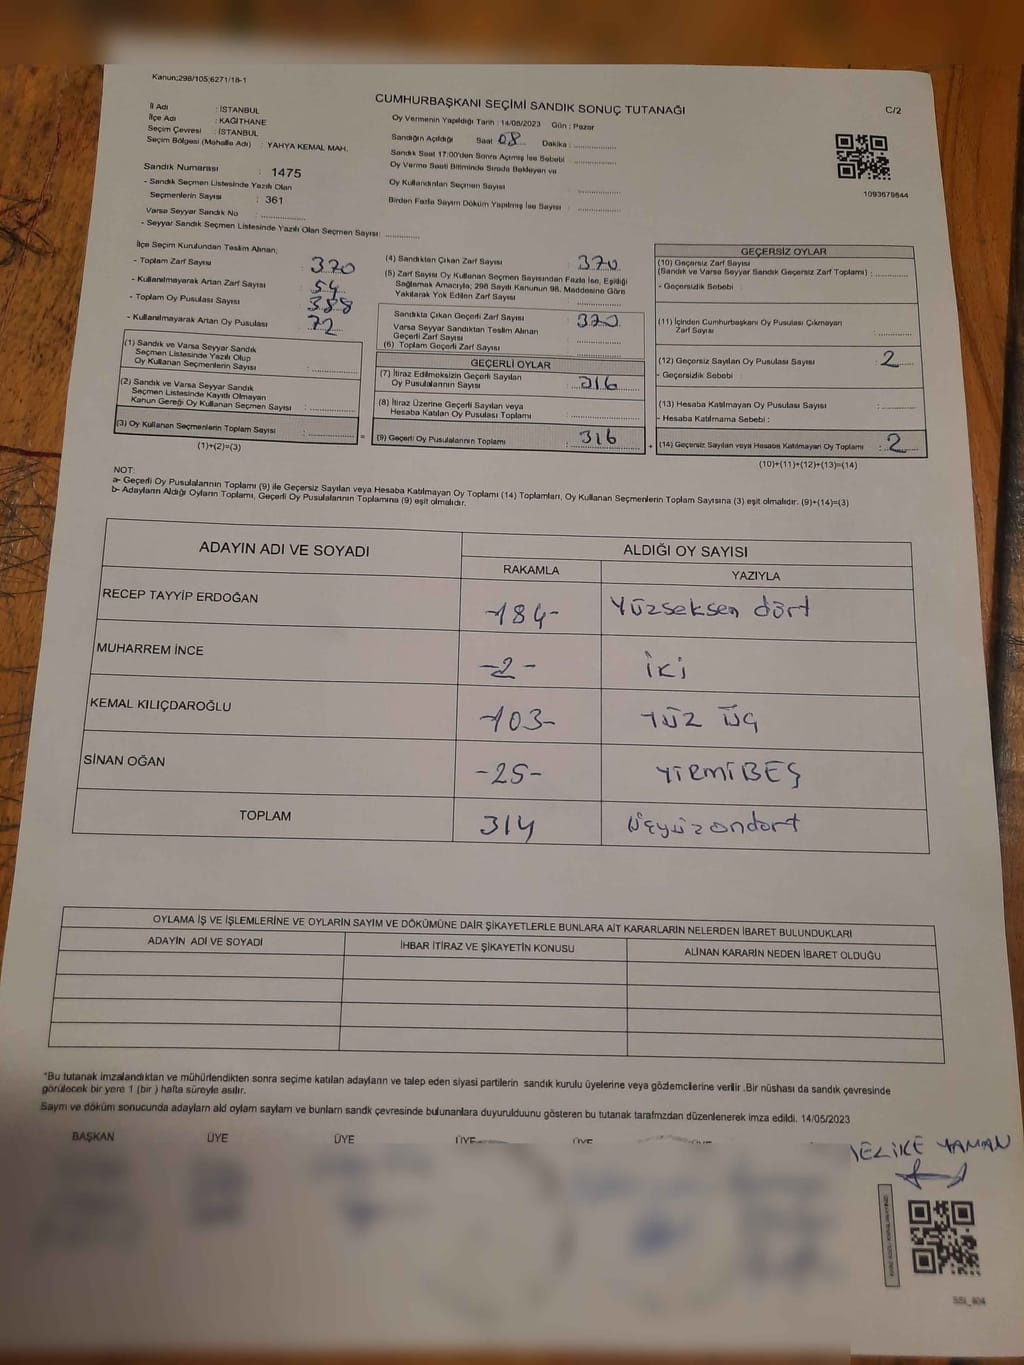 Kanun;298/105;6271/18-1
CUMHURBAŞKANI SEÇİMİ SANDIK SONUÇ TUTANAĞI
C/2
İl Adı : İSTANBUL
İlçe Adı : KAĞITHANE
Seçim Çevresi : İSTANBUL
Seçim Bölgesi (Mahalle Adı) : YAHYA KEMAL MAH.
Sandık Numarası : 1475
- Sandık Seçmen Listesinde Yazılı Olan
Seçmenlerin Sayısı : 361
Varsa Seyyar Sandık No :
- Seyyar Sandık Seçmen Listesinde Yazılı Olan Seçmen Sayısı:
Oy Vermenin Yapıldığı Tarih : 14/05/2023 Gün : Pazar
Sandığın Açıldığı Saat 08 Dakika :
Sandık Saat 17:00'den Sonra Açılmış İse Sebebi :
Oy Verme Saati Bitiminde Sırada Bekleyen ve
Oy Kullandırılan Seçmen Sayısı :
Birden Fazla Sayım Döküm Yapılmış İse Sayısı :
1093679844
İlçe Seçim Kurulundan Teslim Alınan;
- Toplam Zarf Sayısı : 370
- Kullanılmayarak Artan Zarf Sayısı : 54
- Toplam Oy Pusulası Sayısı : 388
- Kullanılmayarak Artan Oy Pusulası : 72
(1) Sandık ve Varsa Seyyar Sandık
Seçmen Listesinde Yazılı Olup
Oy Kullanan Seçmenlerin Sayısı :
(2) Sandık ve Varsa Seyyar Sandık
Seçmen Listesinde Kayıtlı Olmayan
Kanun Gereği Oy Kullanan Seçmen Sayısı :
(3) Oy Kullanan Seçmenlerin Toplam Sayısı : =
(1)+(2)=(3)
(4) Sandıktan Çıkan Zarf Sayısı : 370
(5) Zarf Sayısı Oy Kullanan Seçmen Sayısından Fazla İse, Eşitliği
Sağlamak Amacıyla; 298 Sayılı Kanunun 98. Maddesine Göre
Yakılarak Yok Edilen Zarf Sayısı :
Sandıkta Çıkan Geçerli Zarf Sayısı : 320
Varsa Seyyar Sandıktan Teslim Alınan
Geçerli Zarf Sayısı :
(6) Toplam Geçerli Zarf Sayısı :
GEÇERLİ OYLAR
(7) İtiraz Edilmeksizin Geçerli Sayılan
Oy Pusulalarının Sayısı : 316
(8) İtiraz Üzerine Geçerli Sayılan veya
Hesaba Katılan Oy Pusulası Toplamı :
(9) Geçerli Oy Pusulalarının Toplamı : 316 +
GEÇERSİZ OYLAR
(10) Geçersiz Zarf Sayısı
(Sandık ve Varsa Seyyar Sandık Geçersiz Zarf Toplamı) :
- Geçersizlik Sebebi :
(11) İçinden Cumhurbaşkanı Oy Pusulası Çıkmayan
Zarf Sayısı :
(12) Geçersiz Sayılan Oy Pusulası Sayısı : 2
- Geçersizlik Sebebi :
(13) Hesaba Katılmayan Oy Pusulası Sayısı :
- Hesaba Katılmama Sebebi :
(14) Geçersiz Sayılan veya Hesaba Katılmayan Oy Toplamı : 2
(10)+(11)+(12)+(13)=(14)
NOT:
a- Geçerli Oy Pusulalarının Toplamı (9) ile Geçersiz Sayılan veya Hesaba Katılmayan Oy Toplamı (14) Toplamları, Oy Kullanan Seçmenlerin Toplam Sayısına (3) eşit olmalıdır. (9)+(14)=(3)
b- Adayların Aldığı Oyların Toplamı, Geçerli Oy Pusulalarının Toplamına (9) eşit olmalıdır.
ADAYIN ADI VE SOYADI ALDIĞI OY SAYISI
RAKAMLA YAZIYLA
RECEP TAYYİP ERDOĞAN -184- Yüzseksen dört
MUHARREM İNCE -2- İKİ
KEMAL KILIÇDAROĞLU -103- YÜZ ÜÇ
SİNAN OĞAN -25- YİRMİBEŞ
TOPLAM 314 üçyüzondört
OYLAMA İŞ VE İŞLEMLERİNE VE OYLARIN SAYIM VE DÖKÜMÜNE DAİR ŞİKAYETLERLE BUNLARA AİT KARARLARIN NELERDEN İBARET BULUNDUKLARI
ADAYIN ADI VE SOYADI İHBAR İTİRAZ VE ŞİKAYETİN KONUSU ALINAN KARARIN NEDEN İBARET OLDUĞU
*Bu tutanak imzalandıktan ve mühürlendikten sonra seçime katılan adayların ve talep eden siyasi partilerin sandık kurulu üyelerine veya gözlemcilerine verilir .Bir nüshası da sandık çevresinde
görülecek bir yere 1 (bir ) hafta süreyle asılır.
Sayım ve döküm sonucunda adayların ald oyların sayları ve bunların sandk çevresinde bulunanlara duyurulduunu gösteren bu tutanak tarafmzdan düzenlenerek imza edildi. 14/05/2023
BAŞKAN ÜYE ÜYE ÜYE ÜYE
YAMAN